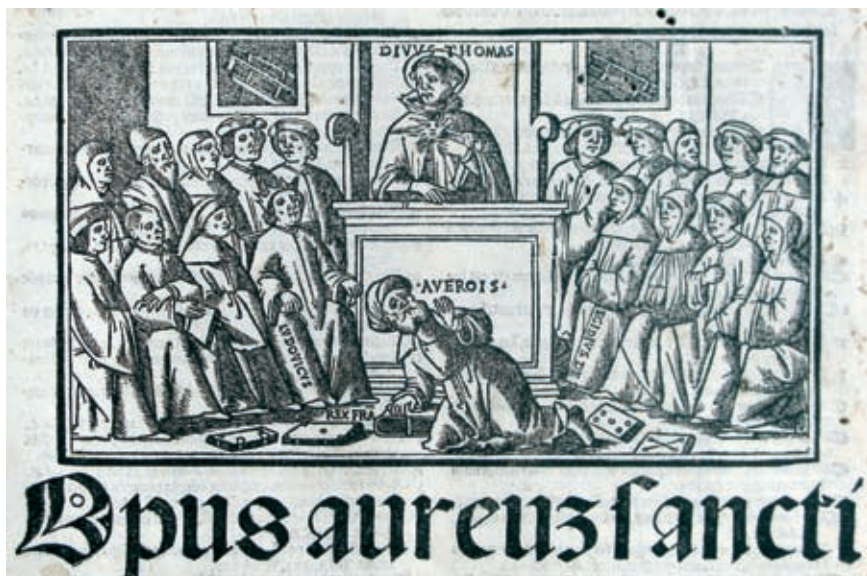 DIVVS THOMAS
AVEROIS
LVDOVICVS
REX FRA
Opus aureuz sancti